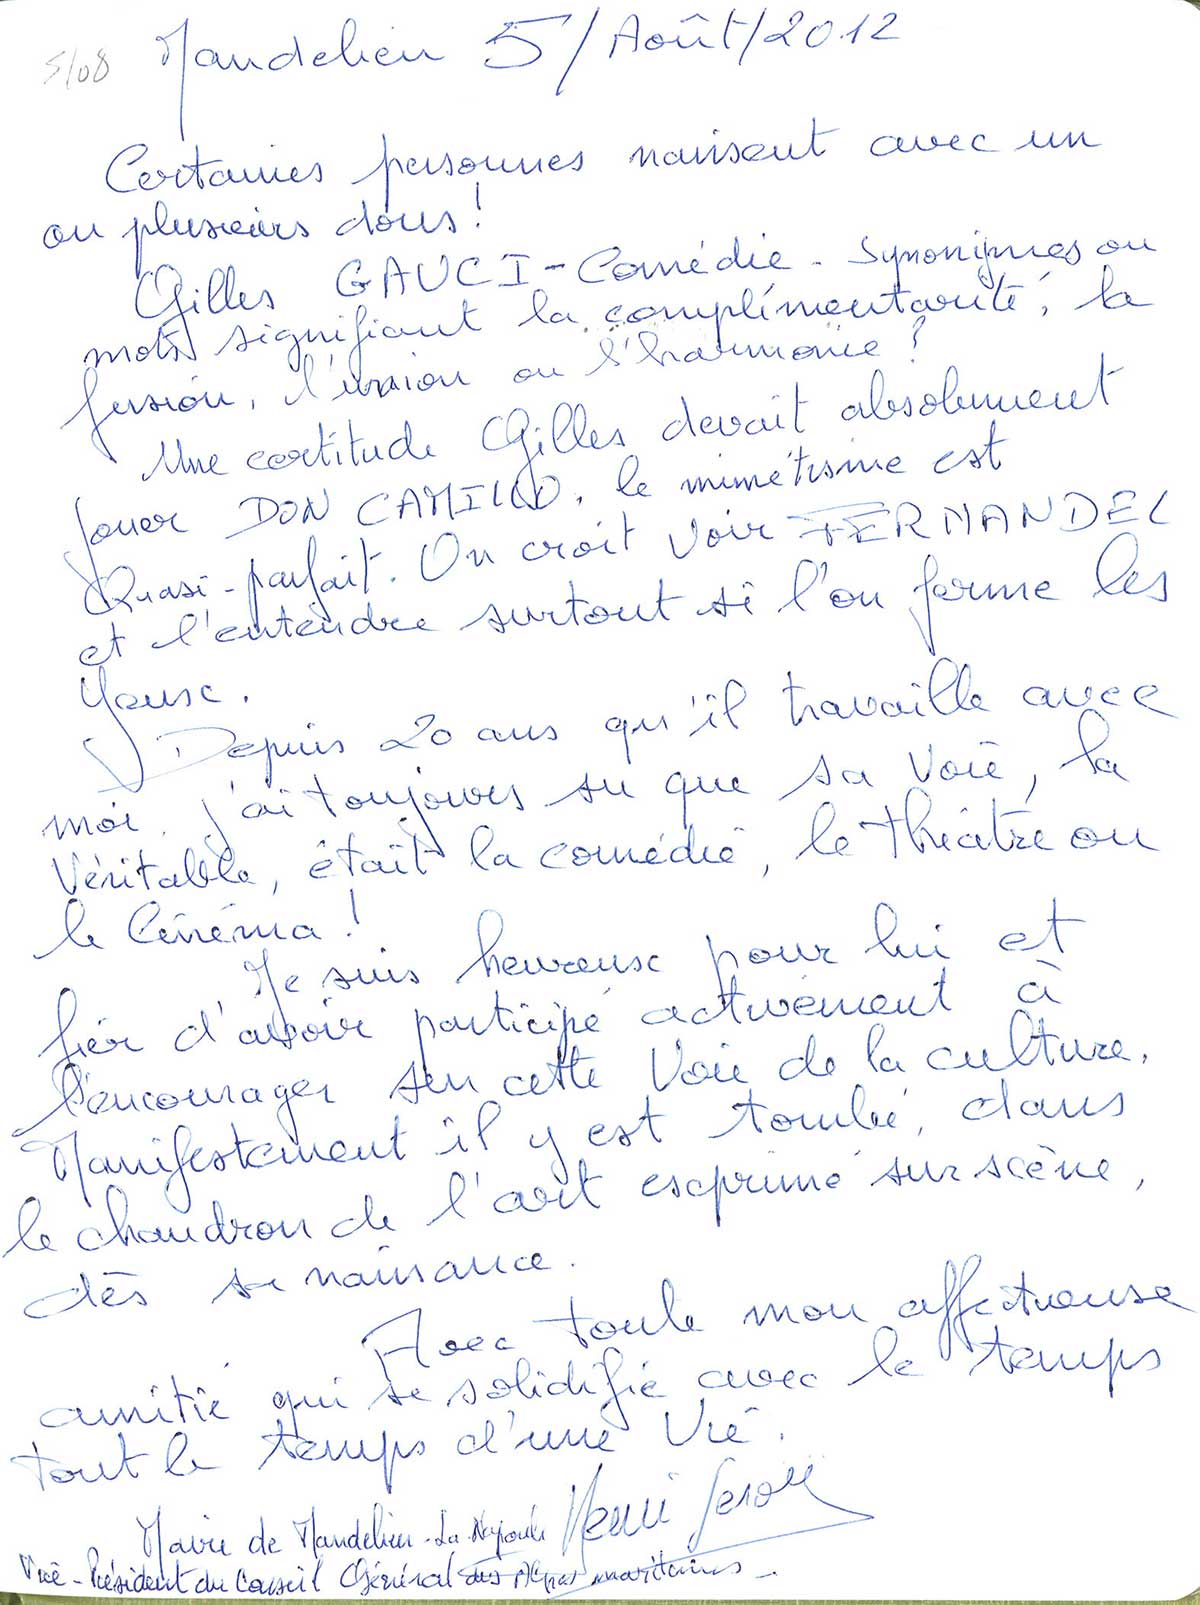 5/08
Mandelieu 5/Août/2012
Certaines personnes naissent avec un
ou plusieurs dons!
Gilles GAUCI - Comédie - Synonymes ou
mots signifiant la complémentarité, la
fusion, l'union ou l'harmonie?
Une certitude Gilles devait absolument
jouer DON CAMILLO, le mimétisme est
Quasi-parfait. On croit voir FERNANDEL
et l'entendre surtout si l'on ferme les
yeux.
Depuis 20 ans qu'il travaille avec
moi, j'ai toujours su que sa voie, la
véritable, était la comédie, le théâtre ou
le Cinéma!
Je suis heureux pour lui et
fier d'avoir participé activement à
l'encourager sur cette voie de la culture.
Manifestement il y est tombé, dans
le chaudron de l'art exprimé sur scène,
dès sa naissance.
Avec toute mon affectueuse
amitié qui se solidifie avec le temps
tout le temps d'une vie.
Maire de Mandelieu-La Napoule Henri Leroy
Vice-Président du Conseil Général des Alpes maritimes -